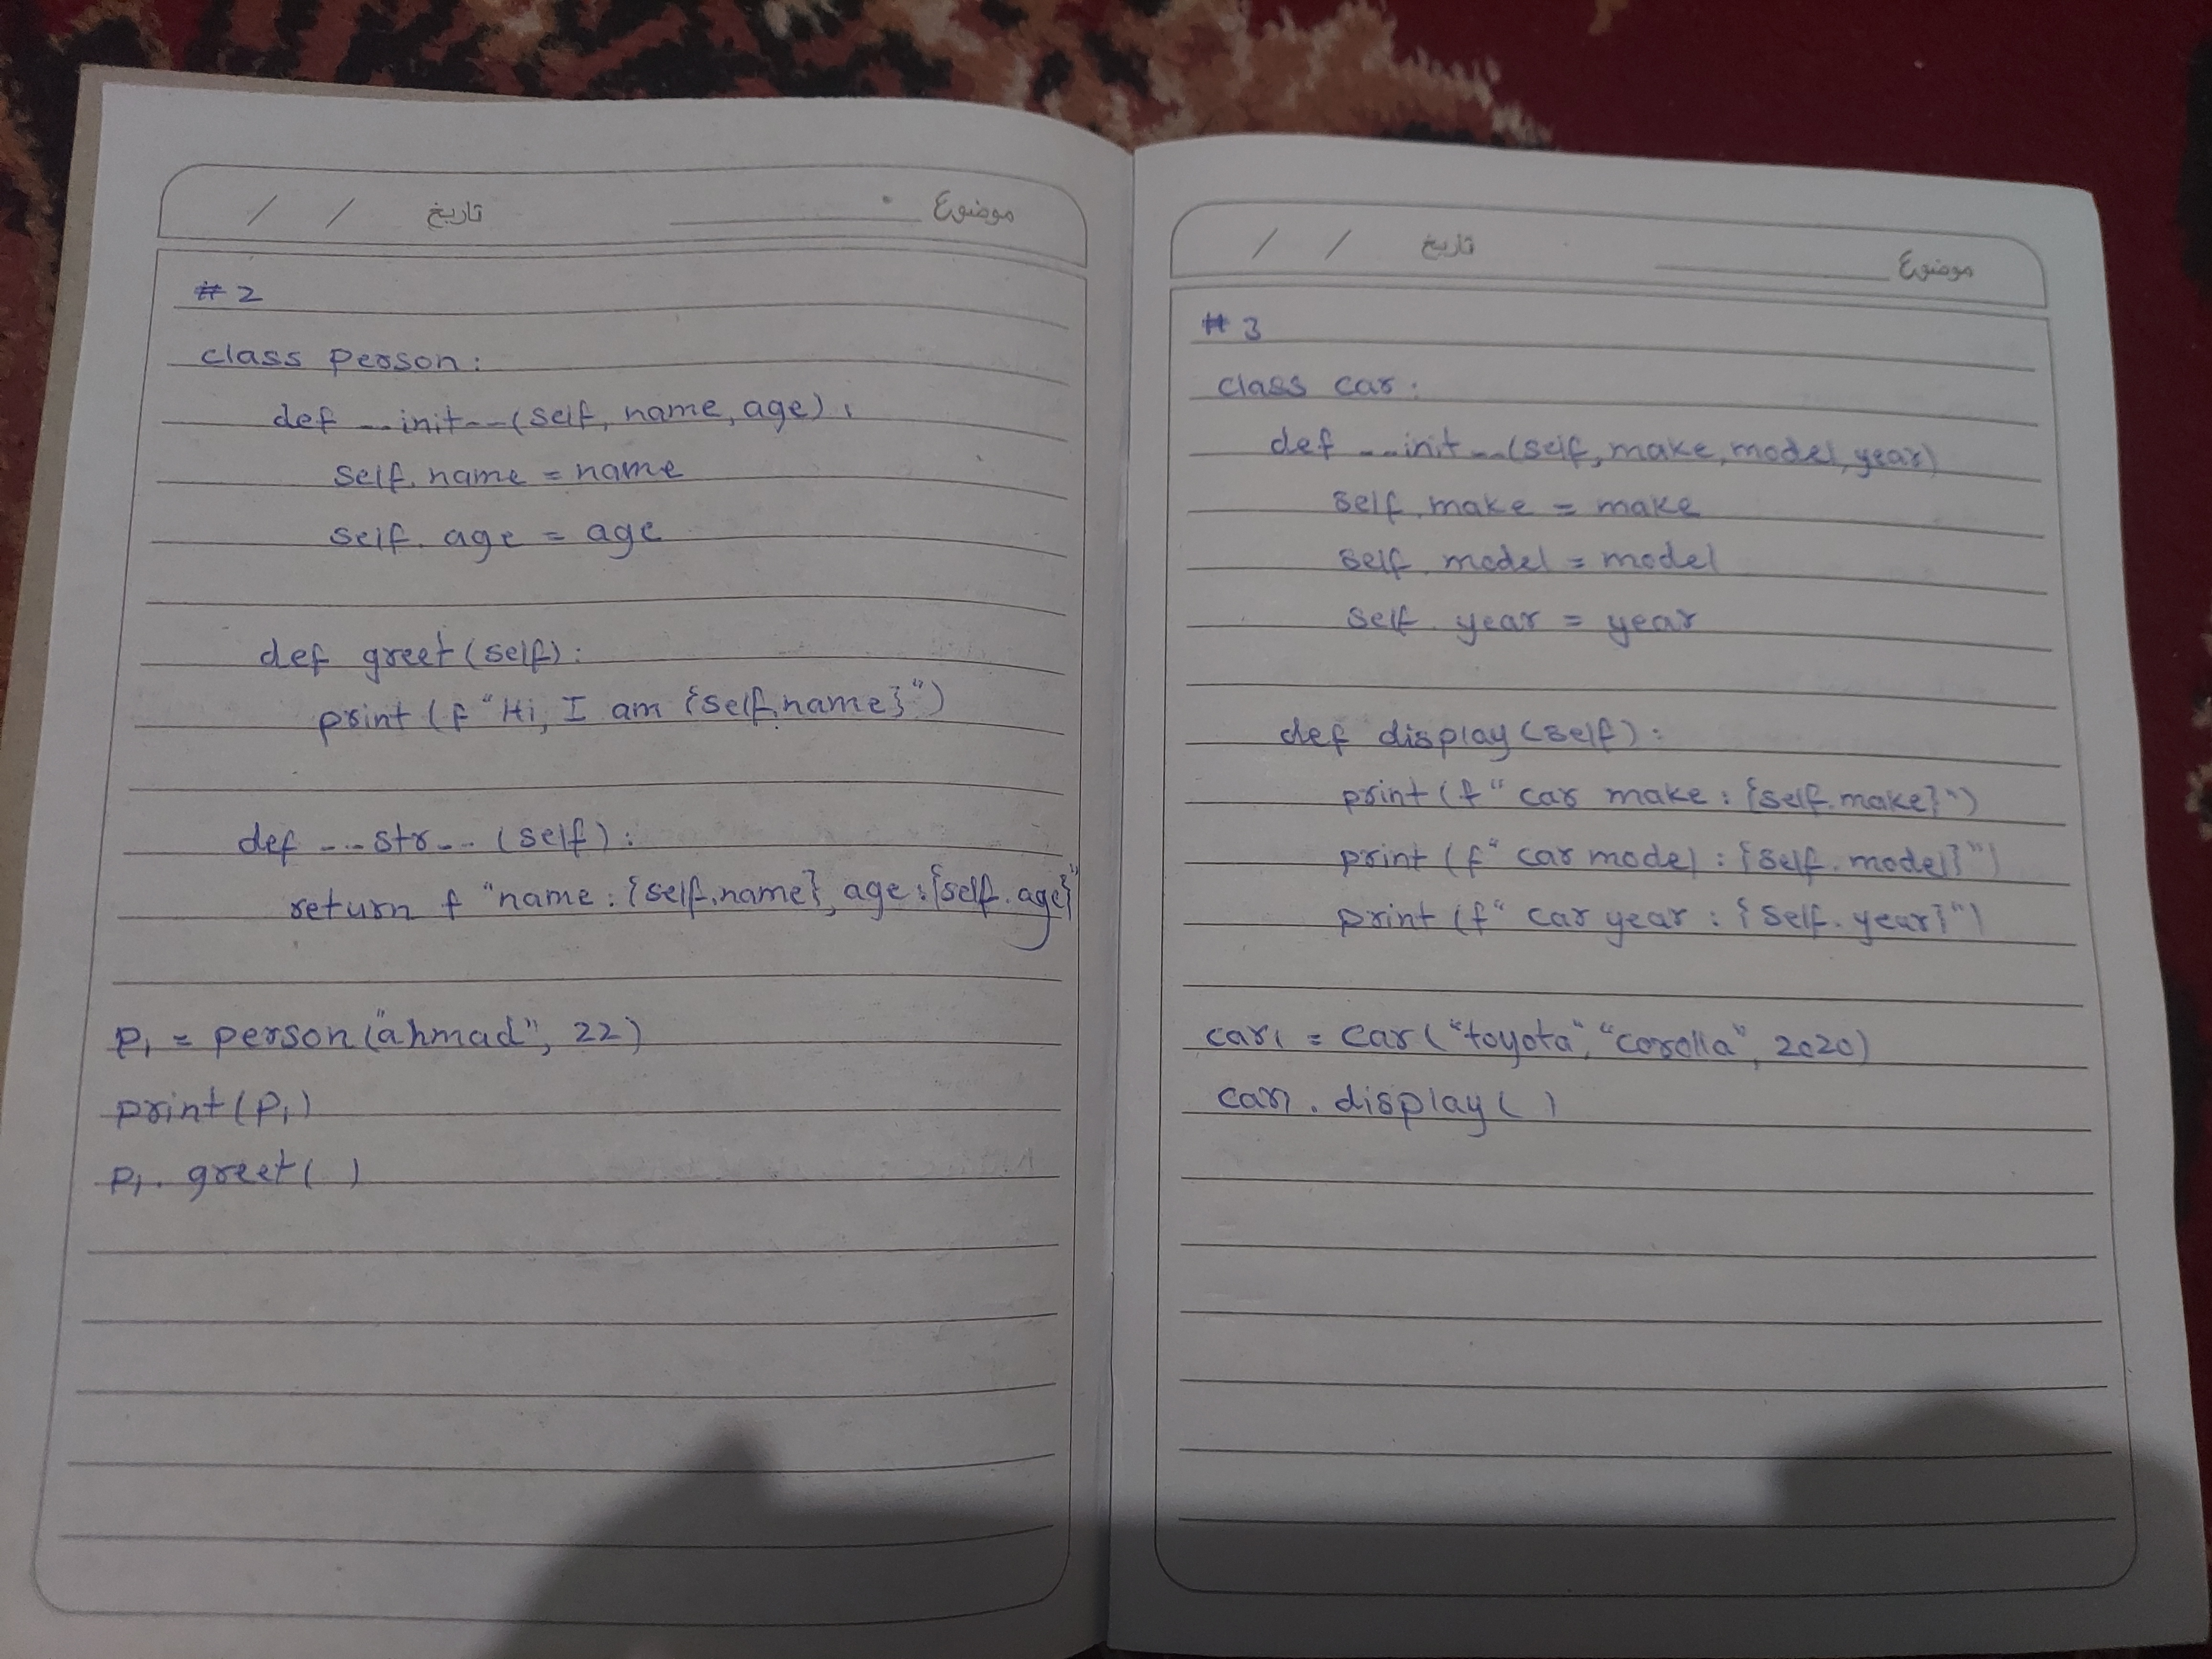 / / تاریخ موضوع
#2
class person:
def __init__(self, name, age):
self.name = name
self.age = age
def greet(self):
print(f"Hi, I am {self.name}")
def __str__(self):
return f "name: {self.name}, age: {self.age}"
p1 = person("ahmad", 22)
print(p1)
p1. greet( )
/ / تاریخ موضوع
#3
class car:
def __init__(self, make, model, year)
self.make = make
self.model = model
self. year = year
def display(self):
print(f" car make : {self.make}")
print(f" car model : {self.model}")
print(f" car year : {self.year}")
car1 = car("toyota", "corolla", 2020)
car1. display( )